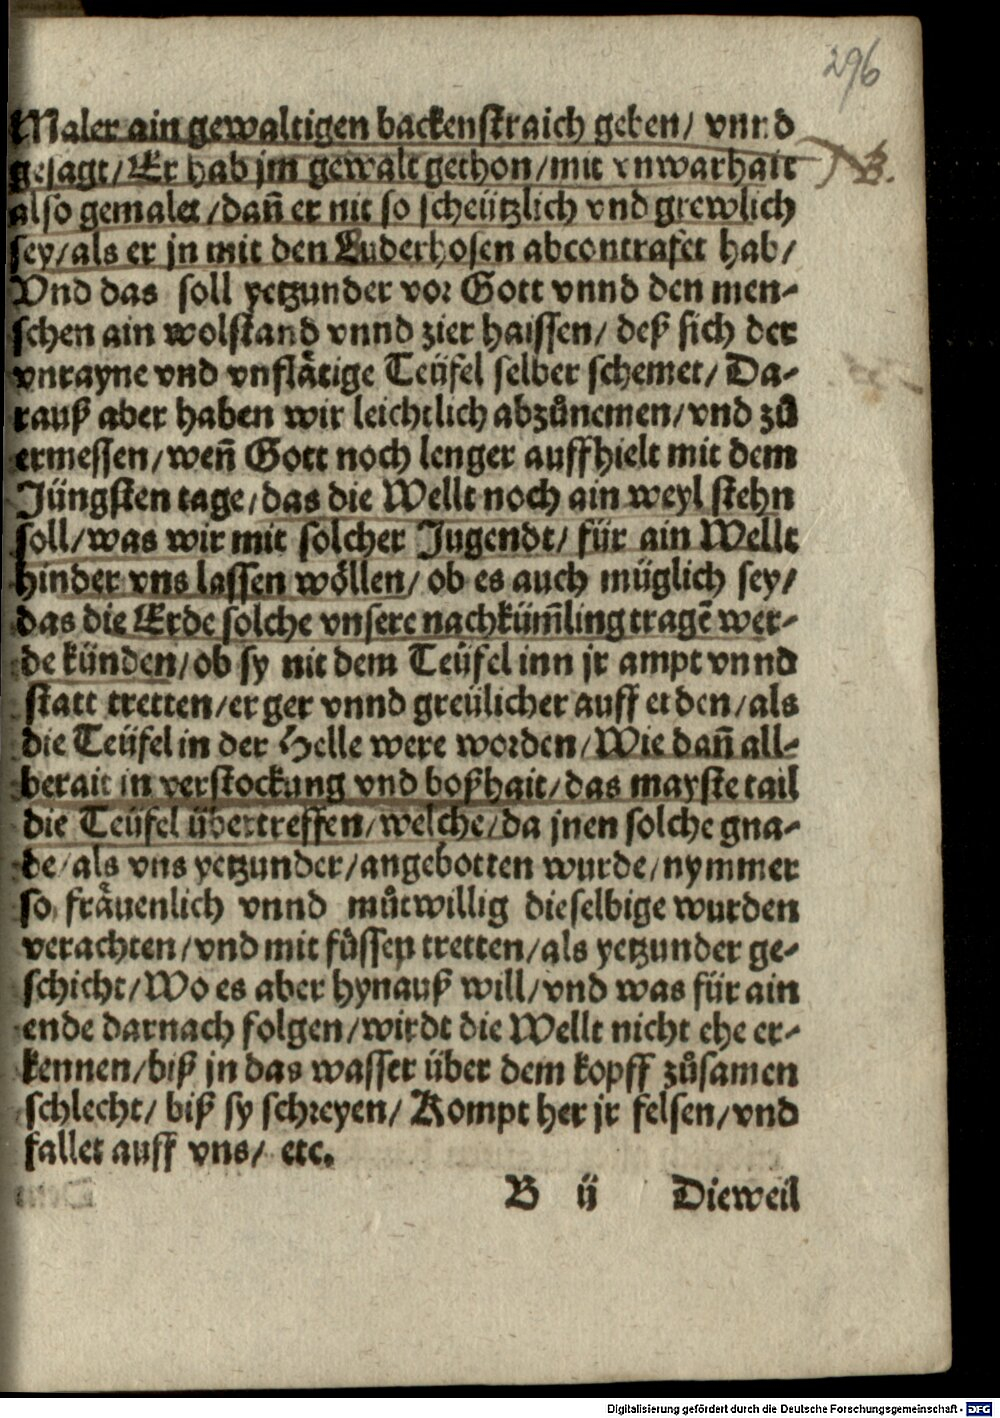 296
Maler ain gewaltigen backenstraich geben/ vnnd
gesagt/Er hab jm gewalt gethon/mit vnwarhait
B.
also gemalet/dañ er nit so scheützlich vnd grewlich
sey/als er jn mit den Luderhosen abcontrafet hab/
Vnd das soll yetzunder vor Gott vnnd den men-
schen ain wolstand vnnd zier haissen/ deß sich der
vnrayne vnd vnflåtige Teüfel selber schemet/ Da-
rauß aber haben wir leichtlich abzůnemen/vnd zů
ermessen/weñ Gott noch lenger auffhielt mit dem
Jüngsten tage/das die Wellt noch ain weyl stehn
soll/was wir mit solcher Jugendt/ für ain Wellt
hinder vns lassen wöllen/ ob es auch müglich sey/
das die Erde solche vnsere nachküm̃ling tragẽ wer-
de künden/ob sy nit dem Teüfel inn jr ampt vnnd
statt tretten/erger vnnd greülicher auff erden/als
die Teüfel in der Helle were worden/Wie dañ all-
berait in verstockung vnd boßhait/das mayste tail
die Teüfel übertreffen/welche/da jnen solche gna-
de/als vns yetzunder/angebotten wurde/nymmer
so fråuenlich vnnd můtwillig dieselbige wurden
verachten/vnd mit fůssen tretten/als yetzunder ge-
schicht/Wo es aber hynauß will/vnd was für ain
ende darnach folgen/wirdt die Wellt nicht ehe er-
kennen/biß jn das wasser über dem kopff zůsamen
schlecht/ biß sy schreyen/ Kompt her jr felsen/vnd
fallet auff vns/ etc.
B ij Dieweil
Digitalisierung gefördert durch die Deutsche Forschungsgemeinschaft - DFG